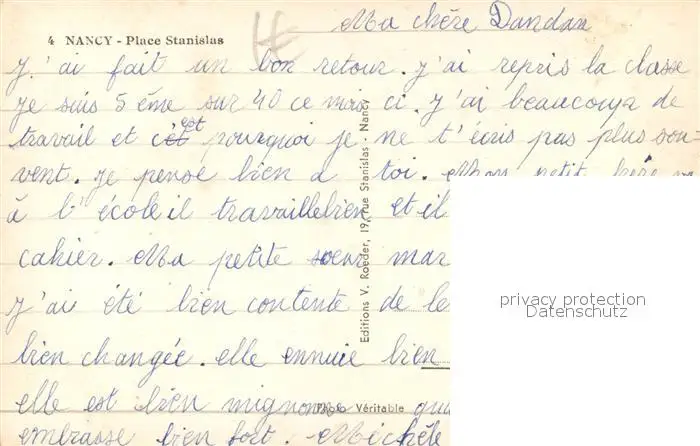 Ma chère Dandan
4 NANCY - Place Stanislas
J'ai fait un bon retour. J'ai repris la classe
Je suis 5 ème sur 40 ce mois ci. J'ai beaucoup de
travail et c'est pourquoi je ne t'écris pas plus sou-
vent. Je pense bien a toi. Mon petit frère
à l'école il travaille bien et il
cahier. Ma petite soeur mar
J'ai été bien contente de le
bien changée. elle ennuie bien
elle est bien mignonne
embrasse bien fort. Michèle
Editions V. Roeder, 19, rue Stanislas - Nancy
Photo Véritable
privacy protection
Datenschutz